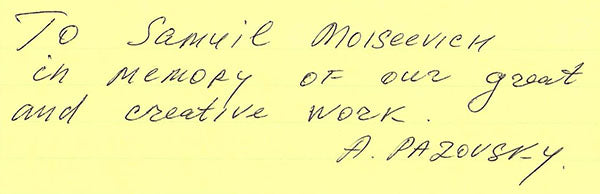 To Samuil Moiseevich
in memory of our great
and creative work.
A. Pazovsky.